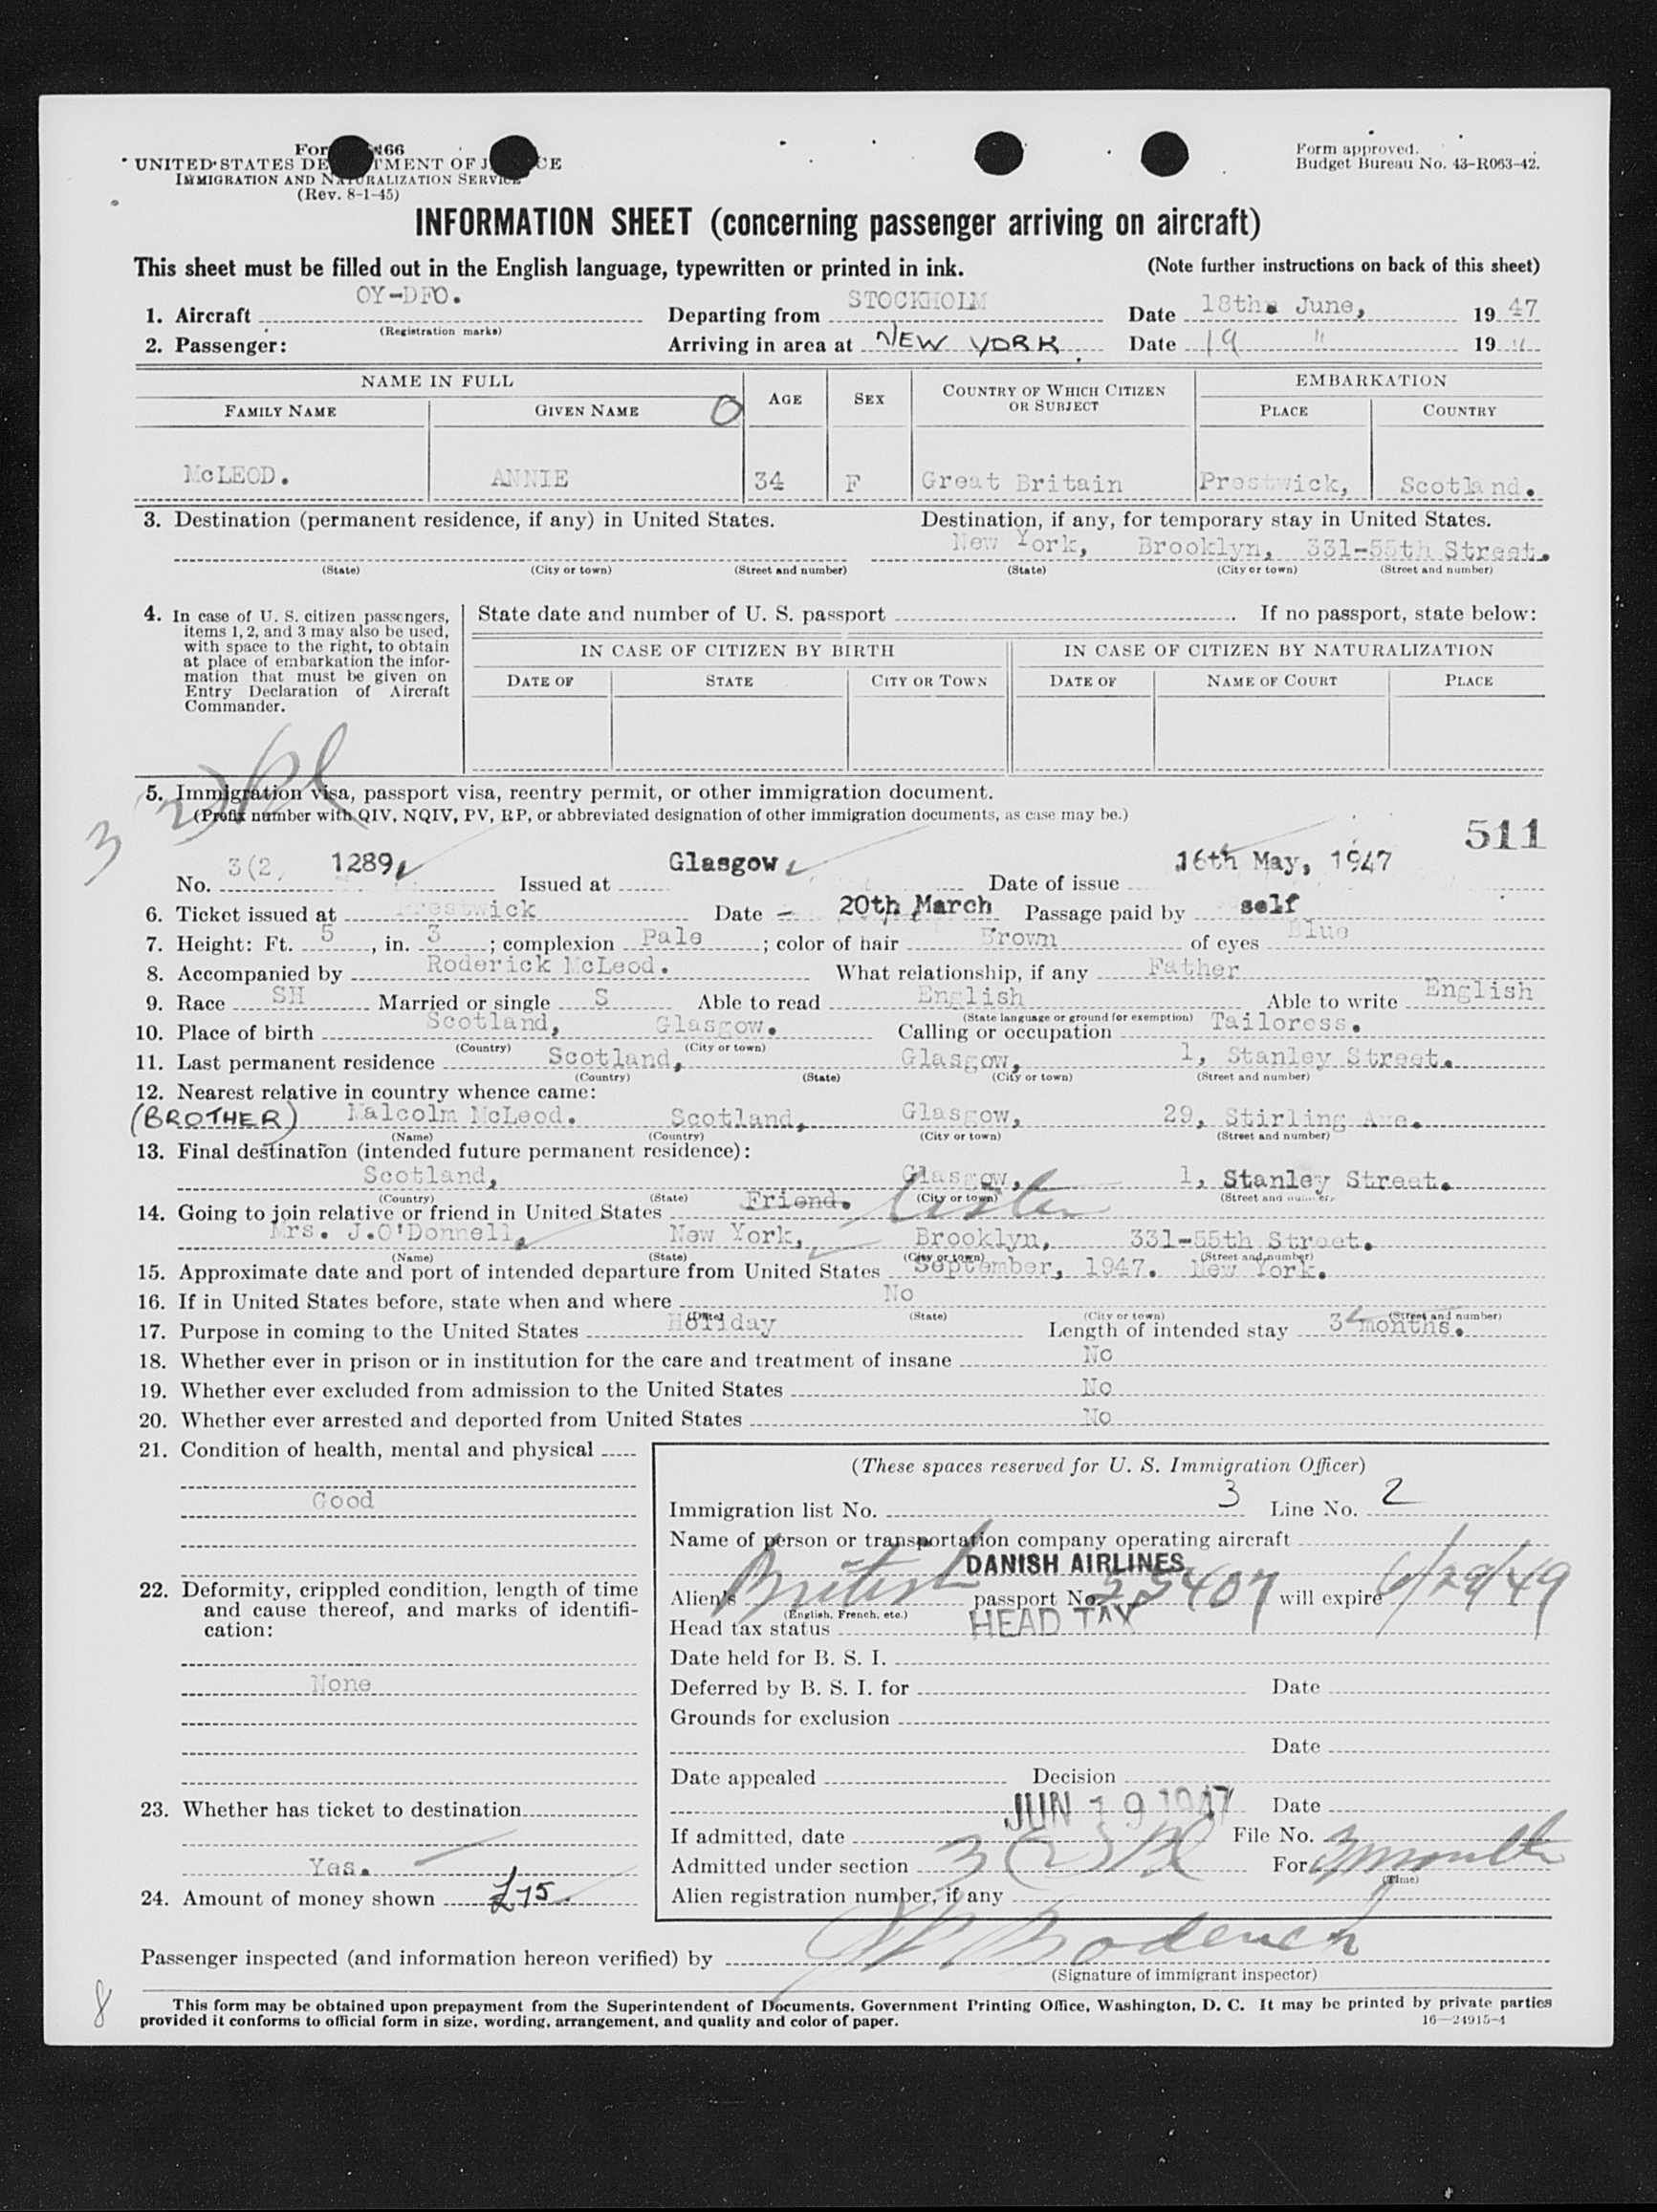 UNITED STATES DE TMENT OF J CE
IMMIGRATION AND NATURALIZATION SERVICE
(Rev. 8-1-45)
Form approved.
Budget Bureau No. 43-R063-42.
INFORMATION SHEET (concerning passenger arriving on aircraft)
This sheet must be filled out in the English language, typewritten or printed in ink. (Note further instructions on back of this sheet)
1. Aircraft OY-DFO. Departing from STOCKHOLM Date 18th. June, 19 47
(Registration marks)
2. Passenger: Arriving in area at NEW YORK. Date 19 " 19 "
NAME IN FULL AGE SEX COUNTRY OF WHICH CITIZEN OR SUBJECT EMBARKATION
FAMILY NAME GIVEN NAME O PLACE COUNTRY
McLEOD. ANNIE 34 F Great Britain Prestwick, Scotland.
3. Destination (permanent residence, if any) in United States. Destination, if any, for temporary stay in United States.
New York, Brooklyn, 331-55th Street.
(State) (City or town) (Street and number) (State) (City or town) (Street and number)
4. In case of U. S. citizen passengers, items 1, 2, and 3 may also be used, with space to the right, to obtain at place of embarkation the information that must be given on Entry Declaration of Aircraft Commander.
State date and number of U. S. passport . If no passport, state below:
IN CASE OF CITIZEN BY BIRTH IN CASE OF CITIZEN BY NATURALIZATION
DATE OF STATE CITY OR TOWN DATE OF NAME OF COURT PLACE
5. Immigration visa, passport visa, reentry permit, or other immigration document.
(Prefix number with QIV, NQIV, PV, RP, or abbreviated designation of other immigration documents, as case may be.)
3 2)
511
No. 3(2, 1289 Issued at Glasgow Date of issue 16th May, 1947
6. Ticket issued at Prestwick Date - 20th March Passage paid by self
7. Height: Ft. 5, in. 3; complexion Pale; color of hair Brown of eyes Blue
8. Accompanied by Roderick McLeod. What relationship, if any Father
9. Race SH Married or single S Able to read English Able to write English
(State language or ground for exemption)
10. Place of birth Scotland, Glasgow. Calling or occupation Tailoress.
(Country) (City or town)
11. Last permanent residence Scotland, Glasgow, 1, Stanley Street.
(Country) (State) (City or town) (Street and number)
12. Nearest relative in country whence came:
(BROTHER) Malcolm McLeod. Scotland, Glasgow, 29, Stirling Ave.
(Name) (Country) (City or town) (Street and number)
13. Final destination (intended future permanent residence):
Scotland, Glasgow, 1, Stanley Street.
(Country) (State) (City or town) (Street and number)
14. Going to join relative or friend in United States Friend. Sister
Mrs. J.O'Donnell, New York, Brooklyn, 331-55th Street.
(Name) (State) (City or town) (Street and number)
15. Approximate date and port of intended departure from United States September, 1947. New York.
16. If in United States before, state when and where No
(Date) (State) (City or town) (Street and number)
17. Purpose in coming to the United States Holiday Length of intended stay 3 months.
18. Whether ever in prison or in institution for the care and treatment of insane No
19. Whether ever excluded from admission to the United States No
20. Whether ever arrested and deported from United States No
21. Condition of health, mental and physical
Good
22. Deformity, crippled condition, length of time and cause thereof, and marks of identification:
None
23. Whether has ticket to destination
Yes.
24. Amount of money shown £75.
(These spaces reserved for U. S. Immigration Officer)
Immigration list No. 3 Line No. 2
Name of person or transportation company operating aircraft
DANISH AIRLINES
Alien's British passport No. 25407 will expire 6/29/49
(English, French, etc.)
Head tax status HEAD TAX
Date held for B. S. I.
Deferred by B. S. I. for Date
Grounds for exclusion
Date
Date appealed Decision
Date
If admitted, date JUN 19 1947 File No.
Admitted under section 3 (2) For 3 months
(Time)
Alien registration number, if any
Passenger inspected (and information hereon verified) by
(Signature of immigrant inspector)
8
This form may be obtained upon prepayment from the Superintendent of Documents, Government Printing Office, Washington, D. C. It may be printed by private parties
provided it conforms to official form in size, wording, arrangement, and quality and color of paper.
16—24915-4